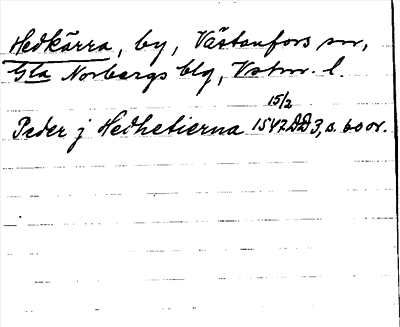 Hedkärra, by, Västanfors sn,
Gla Norbergs blg, Vstm. l.
15/2
Peder j Hedhetierna 1542 DD 3, s. 60 or.